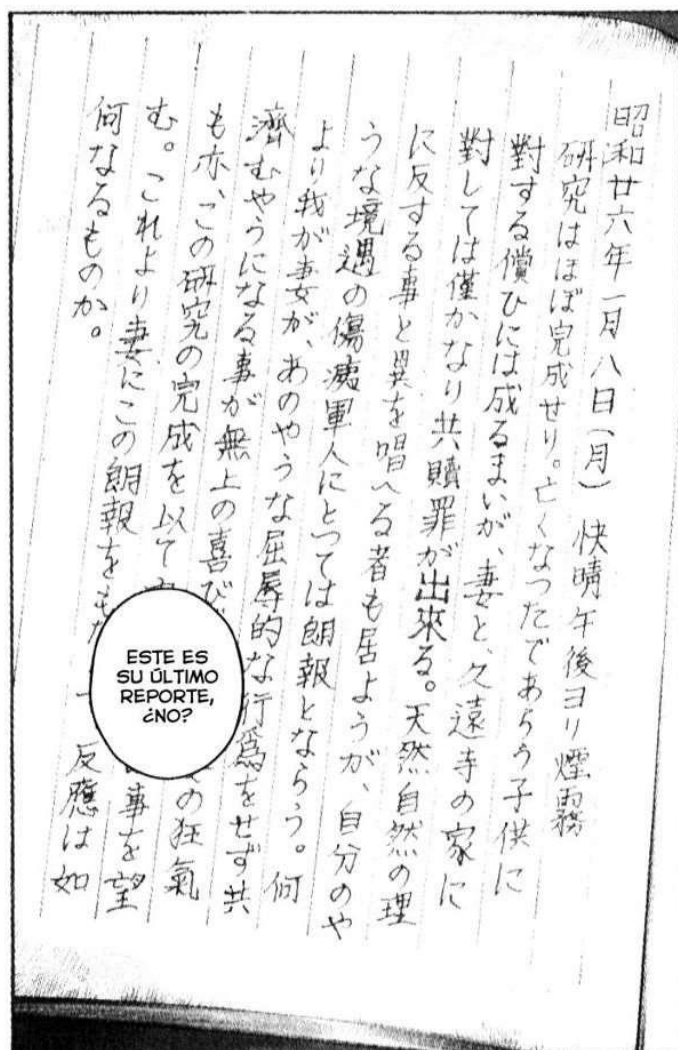 昭和廿六年一月八日(月) 快晴午後ヨリ煙霧
研究はほぼ完成せり。亡くなつたであらう子供に
對する償ひには成るまいが、妻と、久遠寺の家に
對しては僅かなり共贖罪が出來る。天然自然の理
に反する事と異を唱へる者も居ようが、自分のや
うな境遇の傷痍軍人にとつては朗報とならう。何
より我が妻が、あのやうな屈辱的な行爲をせず共
濟むやうになる事が無上の喜び の狂氣
も亦、この研究の完成を以て 事を望
む。これより妻にこの朗報をも 反應は如
何なるものか。
ESTE ES
SU ÚLTIMO
REPORTE,
¿NO?